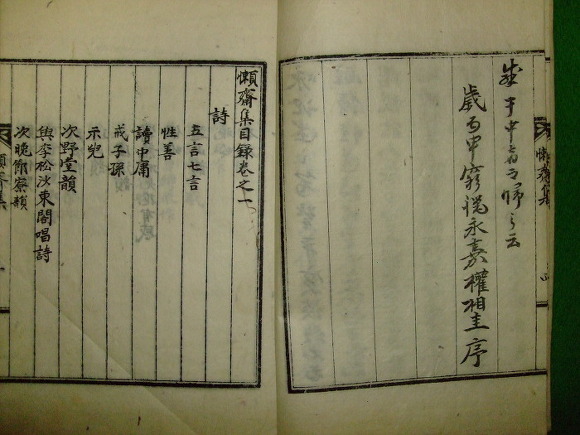 懶齋集
歲丙申窮永嘉權相圭序
懶齋集目錄卷之一
詩
五言七言
性善
讀中庸
戒子孫
示兒
次野堂韻
與李松沙東閣唱詩
次晚節寮韻
懶齋集